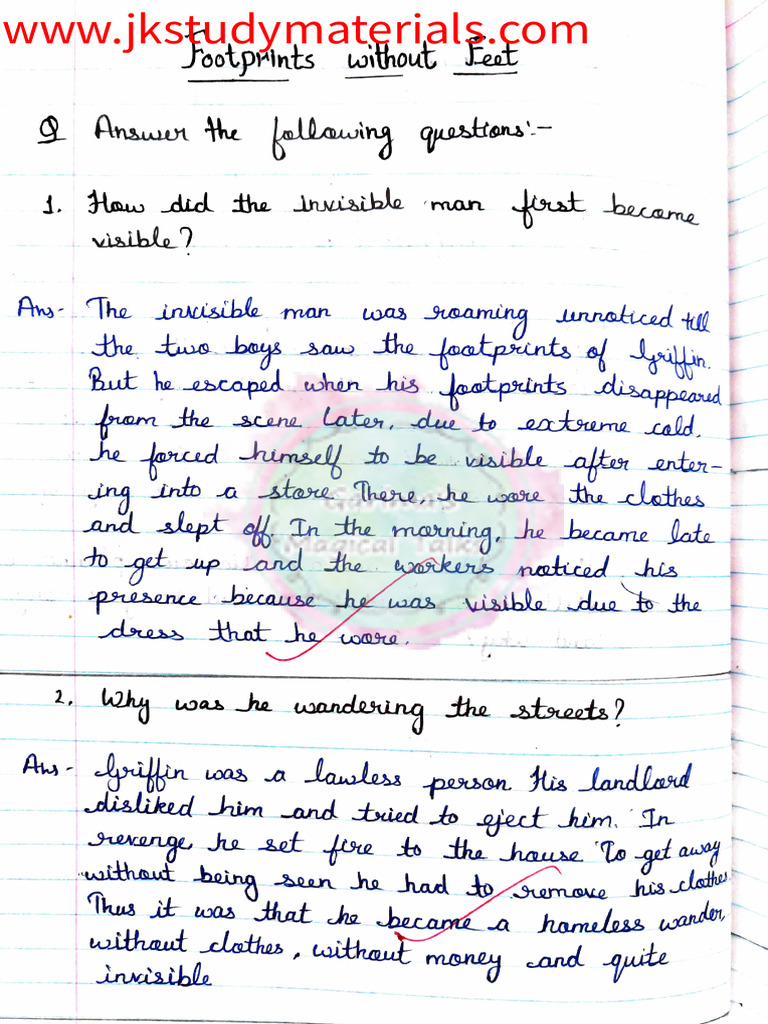 www.jkstudymaterials.com
Footprints without Feet
Q Answer the following questions:-
1. How did the invisible man first become
visible?
Ans- The invisible man was roaming unnoticed till
the two boys saw the footprints of Griffin.
But he escaped when his footprints disappeared
from the scene later, due to extreme cold,
he forced himself to be visible after enter-
ing into a store. There, he wore the clothes
and slept off. In the morning, he became late
to get up and the workers noticed his
presence because he was visible due to the
dress that he wore.
2. Why was he wandering the streets?
Ans- Griffin was a lawless person. His landlord
disliked him and tried to eject him. In
revenge, he set fire to the house. To get away
without being seen he had to remove his clothes.
Thus it was that he became a homeless wander,
without clothes, without money and quite
invisible
Garima's
Magical Talks